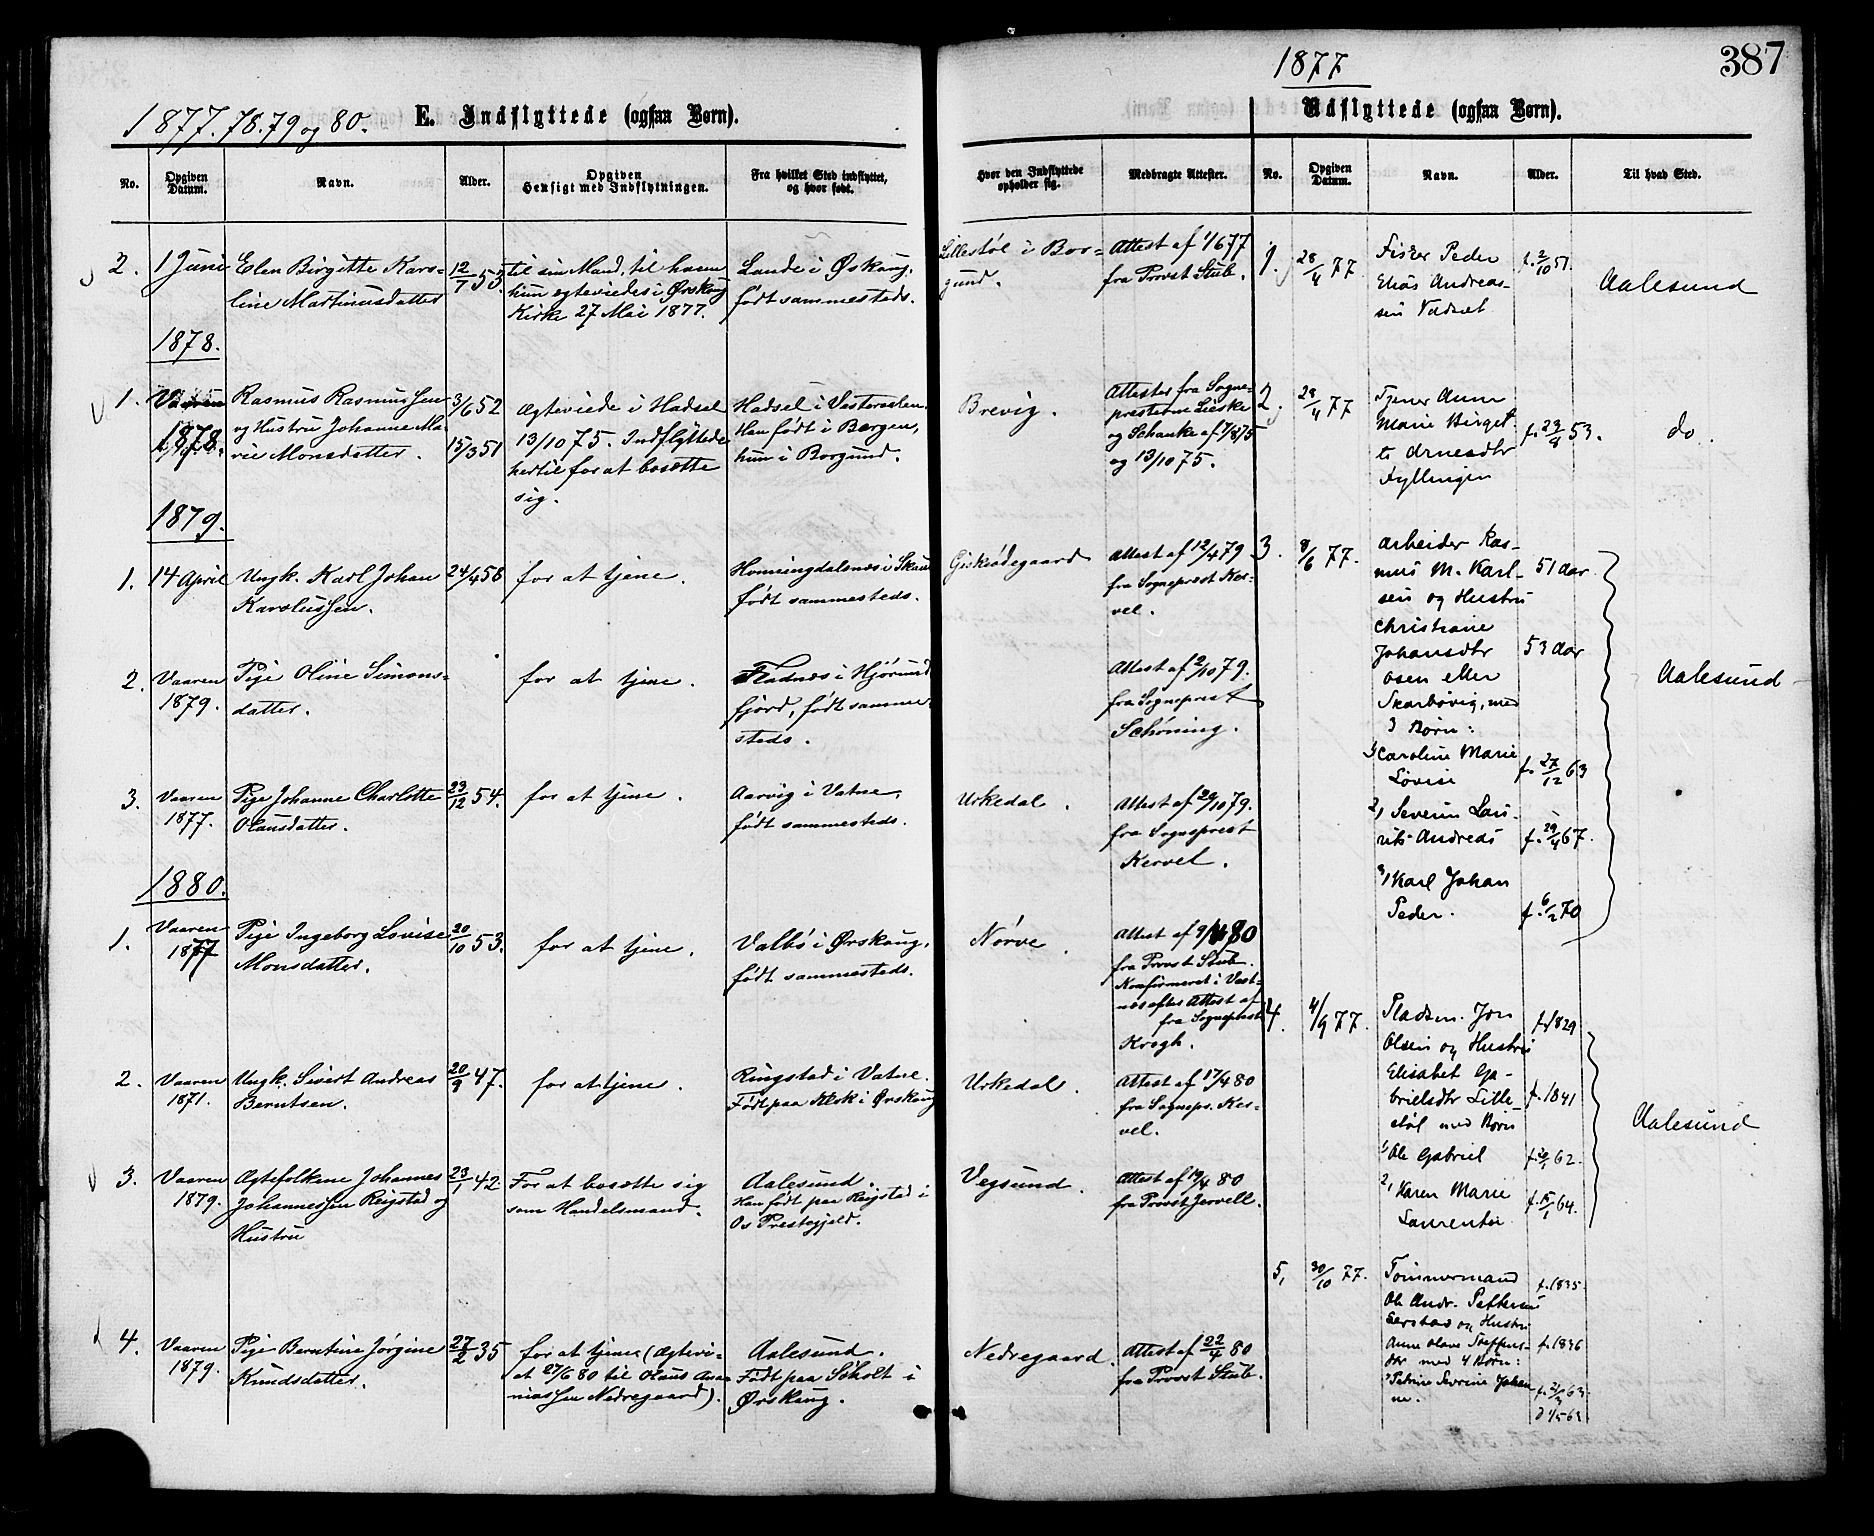 387
1877
1877. 78. 79 og 80. E. Indflyttede (ogsaa Børn).
No.
Opgiven Datum.
Navn.
Alder.
Opgiven
Hensigt med Indflytningen.
Fra hvilket Sted indflyttet,
og hvor født.
Hvor den Indflyttede
opholder sig.
Medbragte Attester.
2. 1 Juni
Elen Birgitte Karo-
line Martinusdatter
12/7 53.
til sin Mand, til hvem
hun ægteviedes i Ørskoug
Kirke 27 Mai 1877.
Lande i Ørskoug,
født sammesteds.
Lillestøl i Bor-
gund.
Attest af 1/6 77
fra Provst Stub.
1878.
1. Vaaren
1878.
Rasmus Rasmussen
og Hustru Johanne Ma-
rie Monsdatter.
3/6 52
15/3 51
Ægteviede i Hadsel
13/10 75. Indflyttede
hertil for at bosætte
sig.
Hadsel i Vesteraalen.
Han født i Bergen,
hun i Borgund.
Brevig.
Attester fra Sogne-
presterne Lieske
og Schanke af 7/8 75
og 13/10 75.
1879.
1. 14 April
Ungk. Karl Johan
Karolussen.
24/4 58
for at tjene.
Horningdalsnes i Skaue
født sammesteds.
Giskeødegaard
Attest af 12/4 79
fra Sogneprest Ker-
vel.
2. Vaaren
1879.
Pige Oline Simons-
datter.
for at tjene.
Fladnes i Hjørund
fjord, født samme-
steds.
Attest af 2/10 79.
fra Sogneprest
Schøning.
3. Vaaren
1877.
Pige Johanne Charlotte
Olausdatter.
23/12 54.
for at tjene.
Aarvig i Vatne,
født sammesteds.
Urkedal.
Attest af 20/10 79.
fra Sogneprest
Kervel.
1880.
1. Vaaren
1877
Pige Ingeborg Lovise
Monsdatter.
20/10 53.
for at tjene.
Valbø i Ørskoug,
født sammesteds.
Nørve.
Attest af 9/4 80
fra Provst Stub.
Konfirmeret i Vest-
nes efter Attest af
fra Sogneprest
Krogh.
2. Vaaren
1871.
Ungk. Sivert Andreas
Berntsen.
20/9 47.
for at tjene.
Ringstad i Vatne.
Født paa Klok i Ørskoug
Urkedal.
Attest af 17/4 80
fra Sognepr. Ker-
vel.
3. Vaaren
1879.
Ægtefolkene Johannes
Johannessen Røigstad og
Hustru
23/1 42
For at bosætte sig
som Handelsmand.
Aalesund.
Han født paa Røigstad i
Os Prestegjeld.
Vegsund.
Attest af 19/4 80
fra Provst Jervell.
4. Vaaren
1879.
Pige Berntine Jørgine
Knudsdatter.
27/2 35
for at tjene (Ægtevi-
et 27/6 80 til Olaus Ana-
niassen Nedregaard).
Aalesund.
Født paa Søholt i
Ørskoug.
Nedregaard.
Attest af 22/4 80
fra Provst Stub.
Udflyttede (ogsaa Børn).
No.
Opgiven
Datum.
Navn.
Alder.
Til hvad Sted.
1. 28/4 77.
Fisker Peder
Elias Andreas-
sen Vadset
f. 2/10 51.
Aalesund
2. 28/4 77.
Tjener Anne
Marie Birgit-
te Arnesdtr
Fyllingen
f. 23/4 53.
do.
3. 8/6 77.
Arbeider Ras-
mus M. Karl-
sen og Hustru
Christiane
Johansdtr
Osen eller
Skarbøvig, med
3 Børn:
51 aar
53 aar
1, Caroline Marie
Lovise
f. 27/12 63
2, Severin Lau-
rits Andreas
f. 29/4 67.
3, Karl Johan
Peder.
f. 6/2 70
Aalesund
4. 4/9 77.
Pladsm. Jon
Olsen og Hustru
Elisabet Ga-
brielsdtr Lille-
støl med Børn
f. 1829
f. 1841
1, Ole Gabriel
f. 20/1 62.
2, Karen Marie
Laurentse
f. 15/1 64.
Aalesund
5, 30/10 77.
Tømmermand
Ole Andr. Pettersen
og Hustru
Anne Olave Steffens-
dtr med 4 Børn:
f. 1835
f. 1836
1, Petrine Severine Johan-
ne.
f. 21/3 63.
d 1/5 63